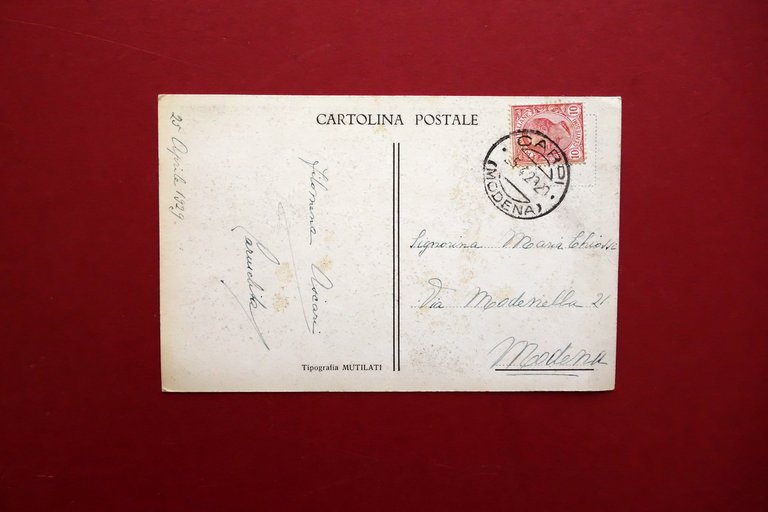 CARTOLINA POSTALE
25 Aprile 1929.
Filomena Ascari
CARPI
(MODENA)
10 10
Signorina Maria
Via Modenella 21
Modena
Tipografia MUTILATI